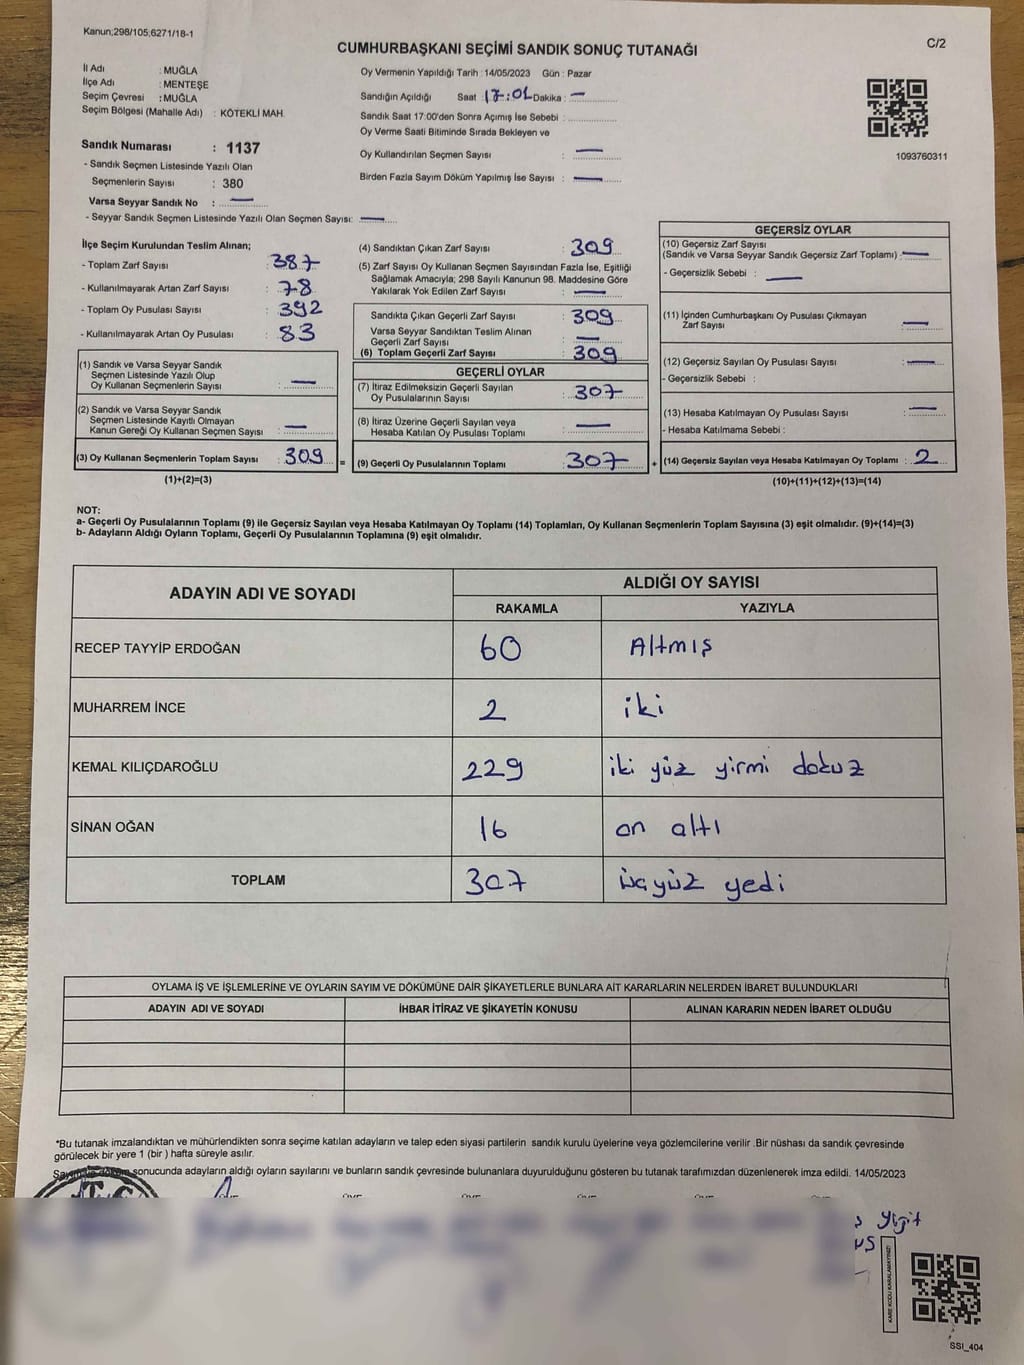 Kanun;298/105;6271/18-1
C/2
CUMHURBAŞKANI SEÇİMİ SANDIK SONUÇ TUTANAĞI
İl Adı : MUĞLA
İlçe Adı : MENTEŞE
Seçim Çevresi : MUĞLA
Seçim Bölgesi (Mahalle Adı) : KÖTEKLİ MAH.
Sandık Numarası : 1137
- Sandık Seçmen Listesinde Yazılı Olan
Seçmenlerin Sayısı : 380
Varsa Seyyar Sandık No : —
- Seyyar Sandık Seçmen Listesinde Yazılı Olan Seçmen Sayısı: —
Oy Vermenin Yapıldığı Tarih : 14/05/2023 Gün : Pazar
Sandığın Açıldığı Saat 17:01 Dakika : —
Sandık Saat 17:00'den Sonra Açımış İse Sebebi :
Oy Verme Saati Bitiminde Sırada Bekleyen ve
Oy Kullandırılan Seçmen Sayısı : —
Birden Fazla Sayım Döküm Yapılmış İse Sayısı : —
1093760311
İlçe Seçim Kurulundan Teslim Alınan;
- Toplam Zarf Sayısı : 387
- Kullanılmayarak Artan Zarf Sayısı : 78
- Toplam Oy Pusulası Sayısı : 392
- Kullanılmayarak Artan Oy Pusulası : 83
(1) Sandık ve Varsa Seyyar Sandık
Seçmen Listesinde Yazılı Olup
Oy Kullanan Seçmenlerin Sayısı : —
(2) Sandık ve Varsa Seyyar Sandık
Seçmen Listesinde Kayıtlı Olmayan
Kanun Gereği Oy Kullanan Seçmen Sayısı : —
(3) Oy Kullanan Seçmenlerin Toplam Sayısı : 309
(1)+(2)=(3)
(4) Sandıktan Çıkan Zarf Sayısı : 309
(5) Zarf Sayısı Oy Kullanan Seçmen Sayısından Fazla İse, Eşitliği
Sağlamak Amacıyla; 298 Sayılı Kanunun 98. Maddesine Göre
Yakılarak Yok Edilen Zarf Sayısı : —
Sandıkta Çıkan Geçerli Zarf Sayısı : 309
Varsa Seyyar Sandıktan Teslim Alınan
Geçerli Zarf Sayısı : —
(6) Toplam Geçerli Zarf Sayısı : 309
GEÇERLİ OYLAR
(7) İtiraz Edilmeksizin Geçerli Sayılan
Oy Pusulalarının Sayısı : 307
(8) İtiraz Üzerine Geçerli Sayılan veya
Hesaba Katılan Oy Pusulası Toplamı : —
= (9) Geçerli Oy Pusulalarının Toplamı : 307
GEÇERSİZ OYLAR
(10) Geçersiz Zarf Sayısı
(Sandık ve Varsa Seyyar Sandık Geçersiz Zarf Toplamı) : —
- Geçersizlik Sebebi : —
(11) İçinden Cumhurbaşkanı Oy Pusulası Çıkmayan
Zarf Sayısı : —
(12) Geçersiz Sayılan Oy Pusulası Sayısı : —
- Geçersizlik Sebebi :
(13) Hesaba Katılmayan Oy Pusulası Sayısı : —
- Hesaba Katılmama Sebebi :
+ (14) Geçersiz Sayılan veya Hesaba Katılmayan Oy Toplamı : 2
(10)+(11)+(12)+(13)=(14)
NOT:
a- Geçerli Oy Pusulalarının Toplamı (9) ile Geçersiz Sayılan veya Hesaba Katılmayan Oy Toplamı (14) Toplamları, Oy Kullanan Seçmenlerin Toplam Sayısına (3) eşit olmalıdır. (9)+(14)=(3)
b- Adayların Aldığı Oyların Toplamı, Geçerli Oy Pusulalarının Toplamına (9) eşit olmalıdır.
ADAYIN ADI VE SOYADI
ALDIĞI OY SAYISI
RAKAMLA YAZIYLA
RECEP TAYYİP ERDOĞAN 60 Altmış
MUHARREM İNCE 2 iki
KEMAL KILIÇDAROĞLU 229 iki yüz yirmi dokuz
SİNAN OĞAN 16 on altı
TOPLAM 307 üçyüz yedi
OYLAMA İŞ VE İŞLEMLERİNE VE OYLARIN SAYIM VE DÖKÜMÜNE DAİR ŞİKAYETLERLE BUNLARA AİT KARARLARIN NELERDEN İBARET BULUNDUKLARI
ADAYIN ADI VE SOYADI İHBAR İTİRAZ VE ŞİKAYETİN KONUSU ALINAN KARARIN NEDEN İBARET OLDUĞU
*Bu tutanak imzalandıktan ve mühürlendikten sonra seçime katılan adayların ve talep eden siyasi partilerin sandık kurulu üyelerine veya gözlemcilerine verilir .Bir nüshası da sandık çevresinde
görülecek bir yere 1 (bir ) hafta süreyle asılır.
Sayım ve döküm sonucunda adayların aldığı oyların sayılarını ve bunların sandık çevresinde bulunanlara duyurulduğunu gösteren bu tutanak tarafımızdan düzenlenerek imza edildi. 14/05/2023
T.C.
Yiğit
KARE KODU KARALAMAYINIZ!
SSI_404